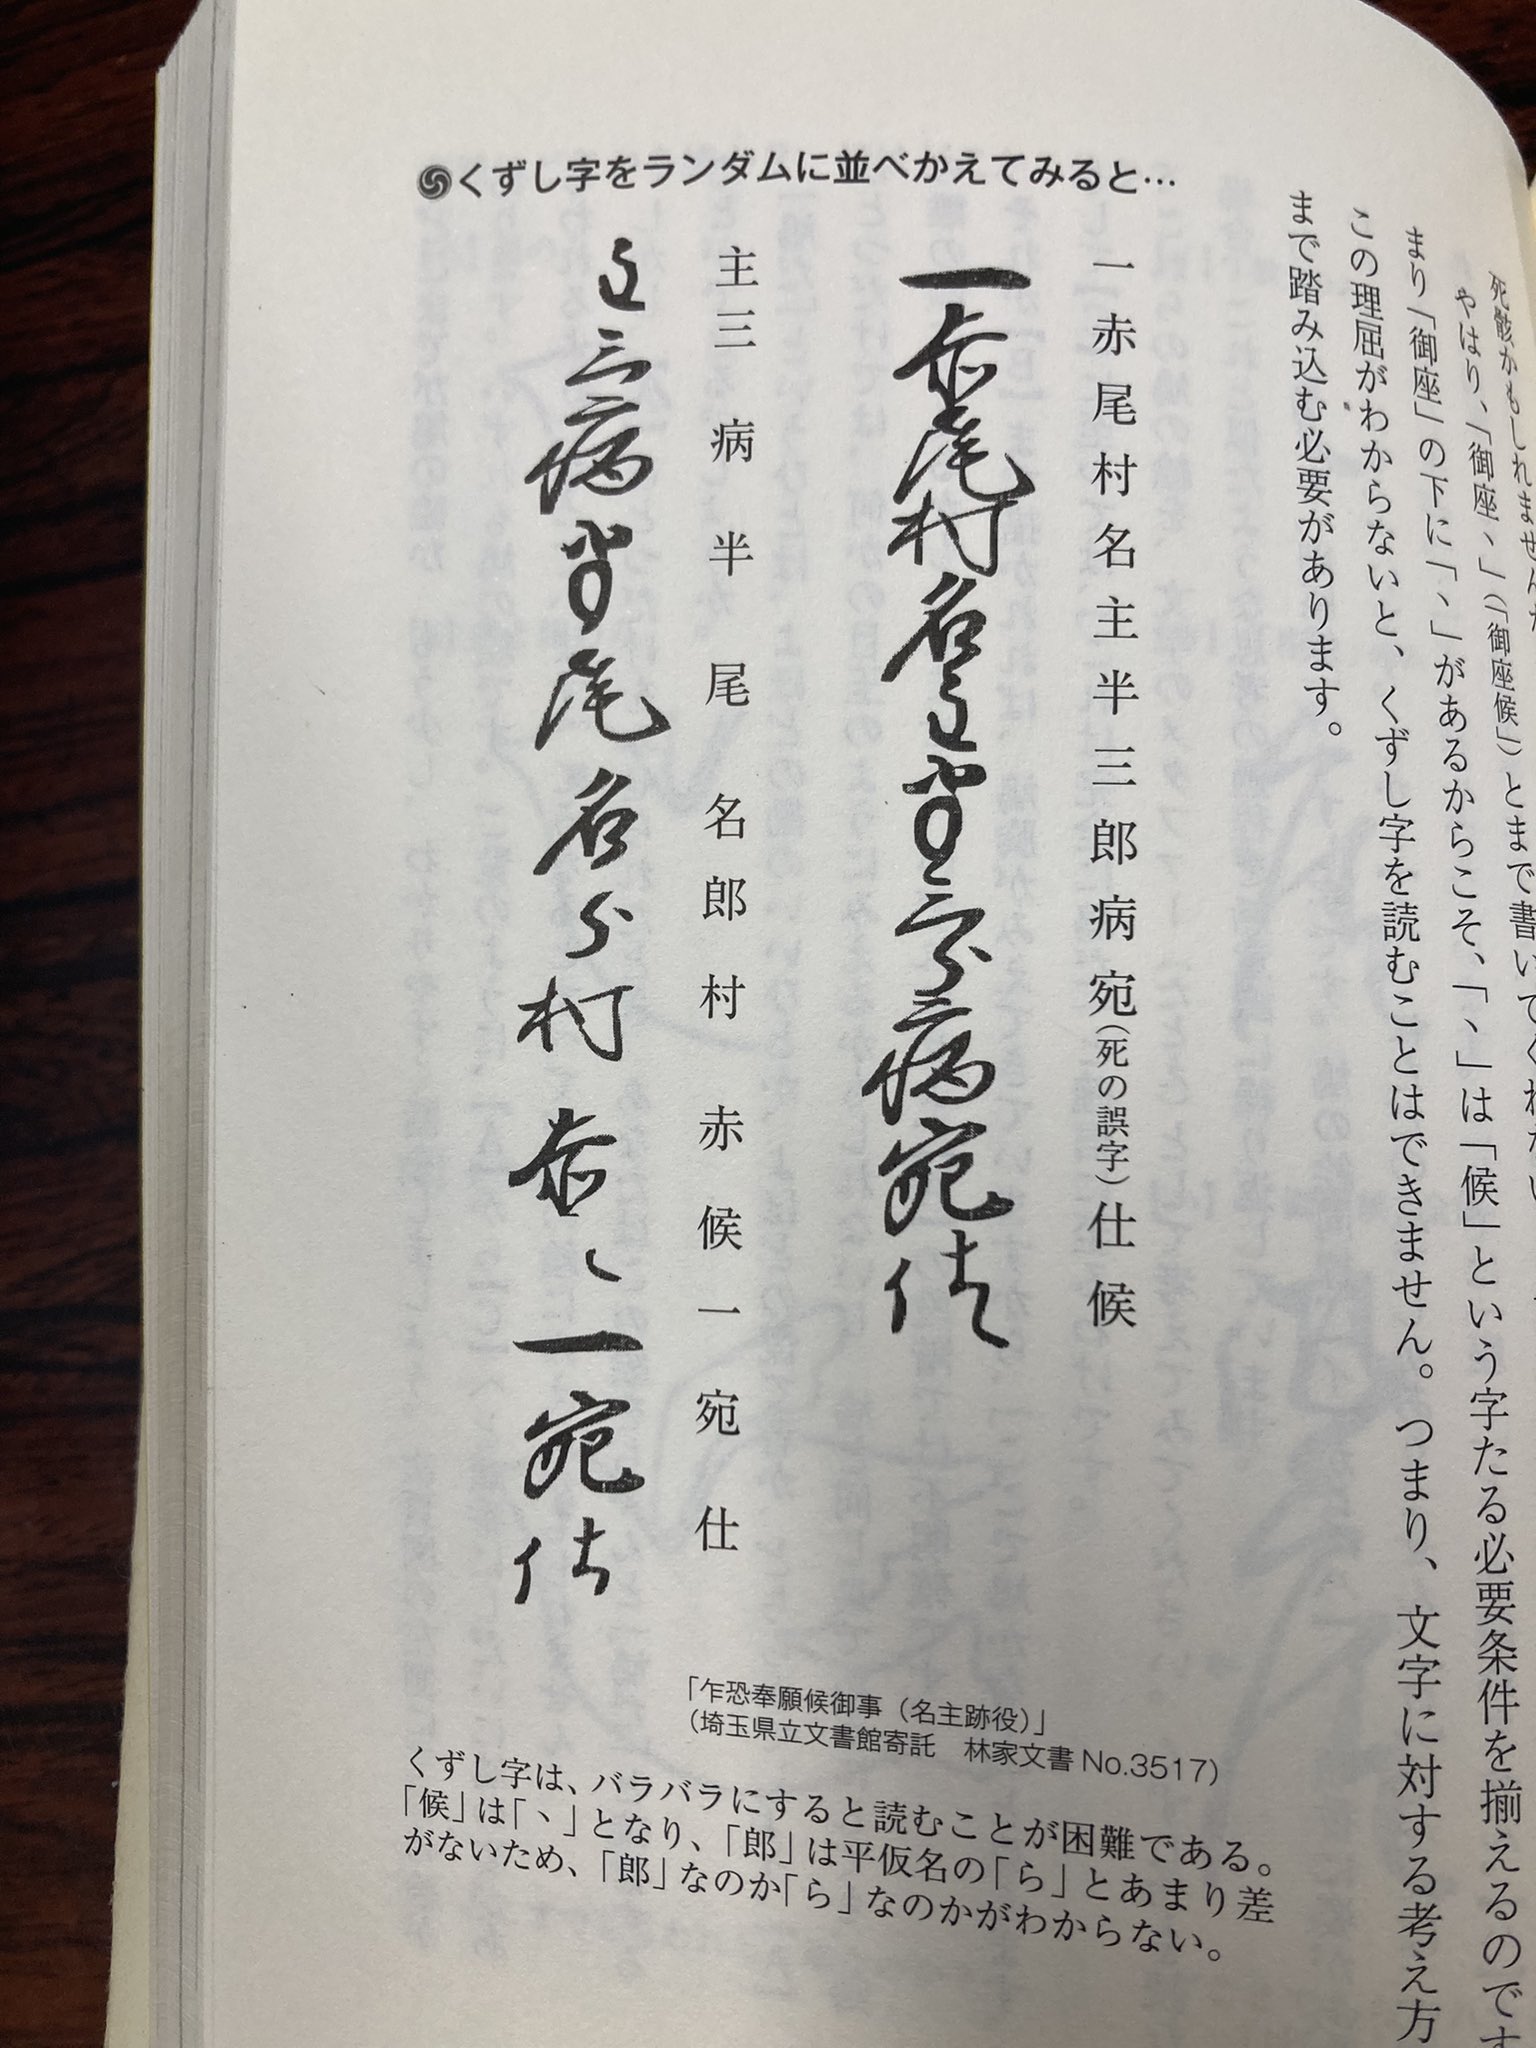 死骸かもしれません
やはり、「御座、」(「御座候」)とまで書いてくれない
まり「御座」の下に「、」があるからこそ、「、」は「候」という字たる必要条件を揃えるのです
この理屈がわからないと、くずし字を読むことはできません。つまり、文字に対する考え方
まで踏み込む必要があります。
くずし字をランダムに並べかえてみると…
一赤尾村名主半三郎病宛(死の誤字)仕候
一赤尾村名主半三郎病宛仕候
主三病半尾名郎村赤候一宛仕
主三病半尾名郎村赤候一宛仕
「乍恐奉願候御事(名主跡役)」
(埼玉県立文書館寄託 林家文書No.3517)
くずし字は、バラバラにすると読むことが困難である。
「候」は「、」となり、「郎」は平仮名の「ら」とあまり差
がないため、「郎」なのか「ら」なのかがわからない。